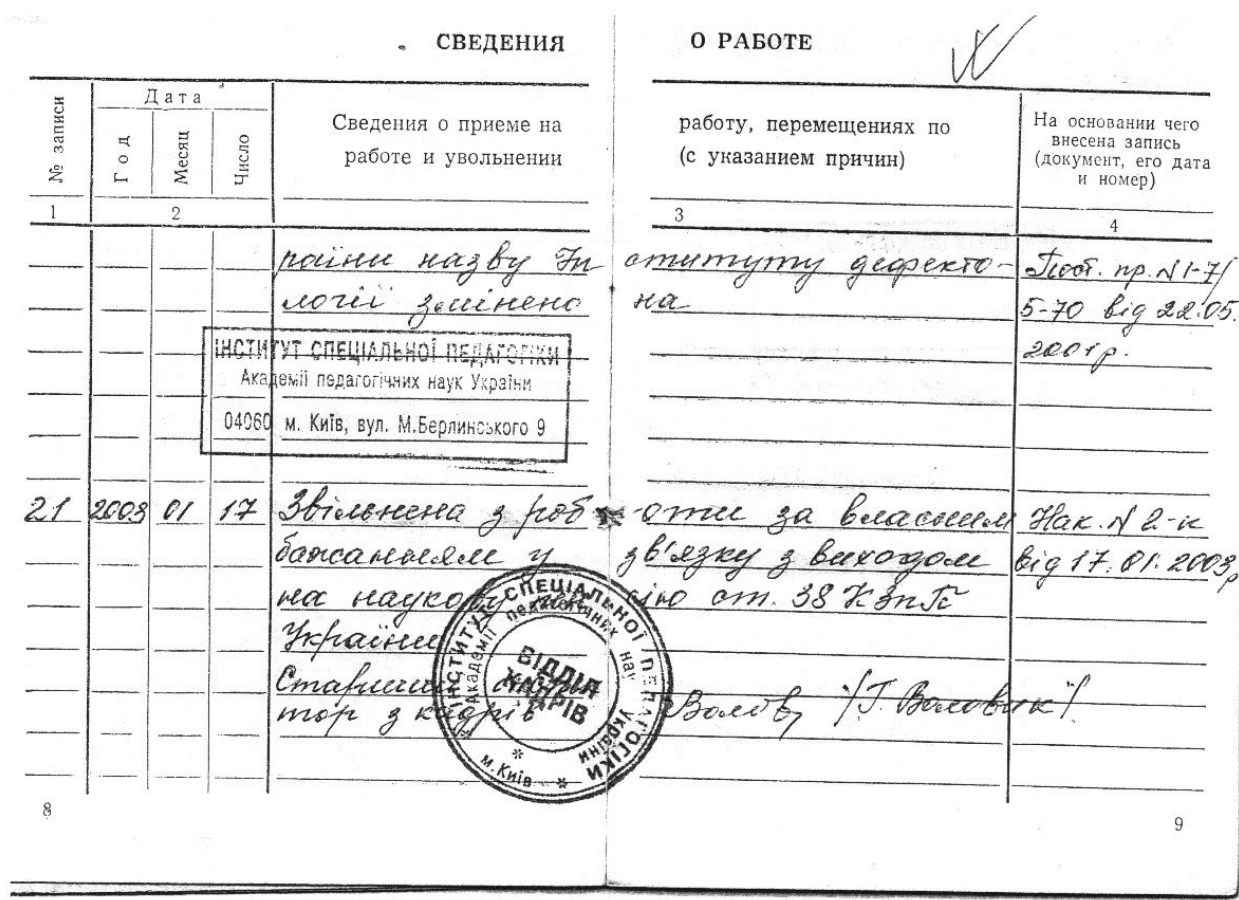 СВЕДЕНИЯ О РАБОТЕ
№ записи
Дата
Год
Месяц
Число
Сведения о приеме на работу, перемещениях по
работе и увольнении (с указанием причин)
На основании чего
внесена запись
(документ, его дата
и номер)
1 2 3 4
раїни назву Інституту дефекто-
логії змінено на
Пост. пр. N 1-7/
5-70 від 22.05.
2001р.
ІНСТИТУТ СПЕЦІАЛЬНОЇ ПЕДАГОГІКИ
Академії педагогічних наук України
04060 м. Київ, вул. М.Берлинського 9
21 2003 01 17 Звільнена з роб-оти за власним
бажанням у зв'язку з виходом
на наукову пенсію ст. 38 КЗпП
України
Нак. N 2-к
від 17.01.2003р
Старший
тор з кадрів /Г. Воловик/.
ІНСТИТУТ СПЕЦІАЛЬНОЇ ПЕДАГОГІКИ
Академії педагогічних наук України
ВІДДІЛ
КАДРІВ
* м.Київ *
8
9